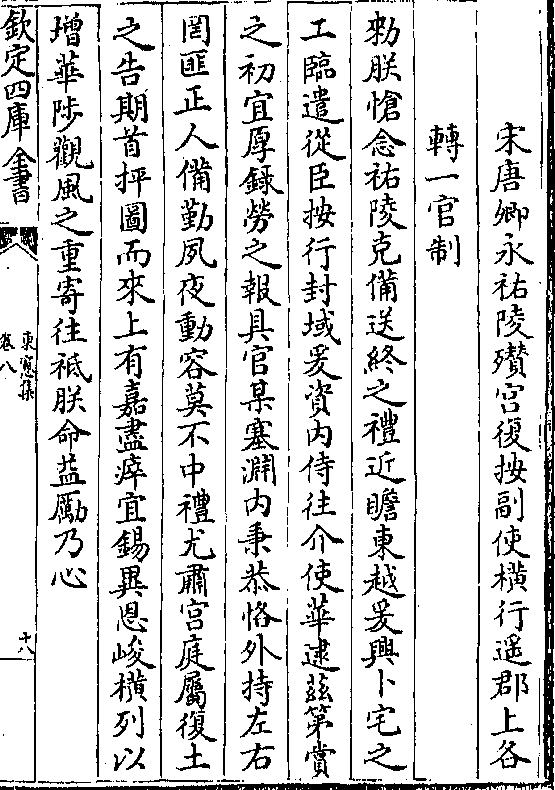 宋唐卿永祐陵殯宫復按副使横行遥郡上各
轉一官制
勑朕愴念祐陵克備送終之禮近瞻東越爰興卜宅之
工臨遣從臣按行封域爰資内侍往介使華逮兹第賞
之初宜厚録勞之報具官某塞淵内秉恭恪外持左右
罔匪正人備勤夙夜動容莫不中禮尤肅宫庭屬復土
之告期首抨圖而來上有嘉盡瘁宜錫異恩峻横列以
增華陟觀風之重寄往祗朕命益勵乃心
欽定四庫全書
東窻集
卷八
十八